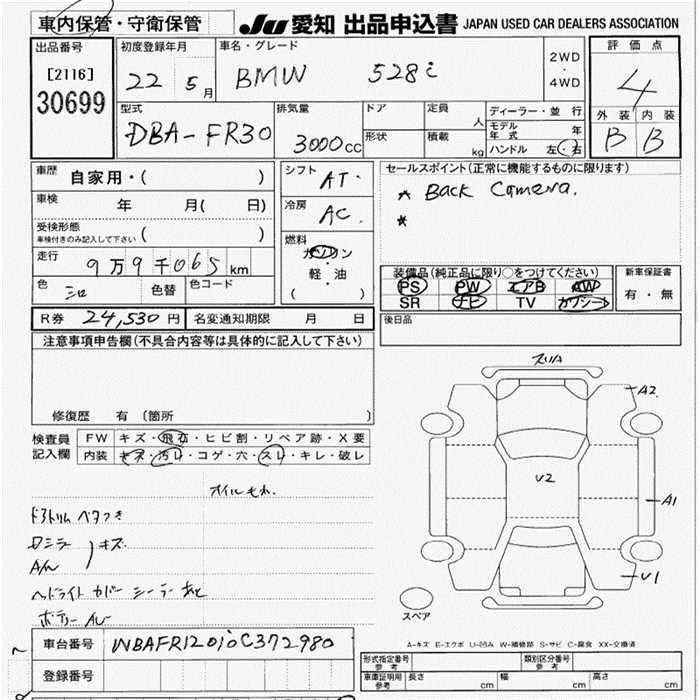 車内保管・守衛保管 JU 愛知 出品申込書 JAPAN USED CAR DEALERS ASSOCIATION
出品番号 [2116] 30699
初度登録年月 22 5月
車名・グレード BMW 528i
2WD・4WD
評価点 4
外装 B 内装 B
型式 DBA-FR30
排気量 3000cc
ドア 定員 人
形状 積載 kg
ディーラー・並行
モデル年式 年
ハンドル 左・右
車歴 自家用・( )
車検 年 月( 日)
受検形態 ( )
車検付きのみ記入して下さい
走行 9万9千065km
色 シロ 色替 色コード
シフト AT
冷房 AC
燃料 ガソリン・軽・油 ( )
セールスポイント(正常に機能するものに限ります)
* Back Camera.
*
装備品(純正品に限り○をつけてください)
PS PW エアB AW
SR ナビ TV カワシート
新車保証書 有・無
R券 24,530円 名変通知期限 月 日
後日品
注意事項申告欄(不具合内容等は具体的に記入して下さい)
修復歴 有 〔箇所
検査員記入欄
FW キズ・飛石・ヒビ割・リペア跡・X要
内装 キズ・汚レ・コゲ・穴・スレ・キレ・破レ
オイルモレ
ドアトリム ベタつき
ロシラ
A/W キズ
ヘッドライト カバー シーラー
スリA
A2
U2
A1
U1
スペア
A-キズ E-エクボ U-凹み W-補修跡 S-サビ C-腐食 XX-交換済
車台番号 WBAFR12010C372980
登録番号
型式指定番号 参考 類別区分番号 参考
車庫証明用 参考 長さ cm 幅 cm 高さ cm